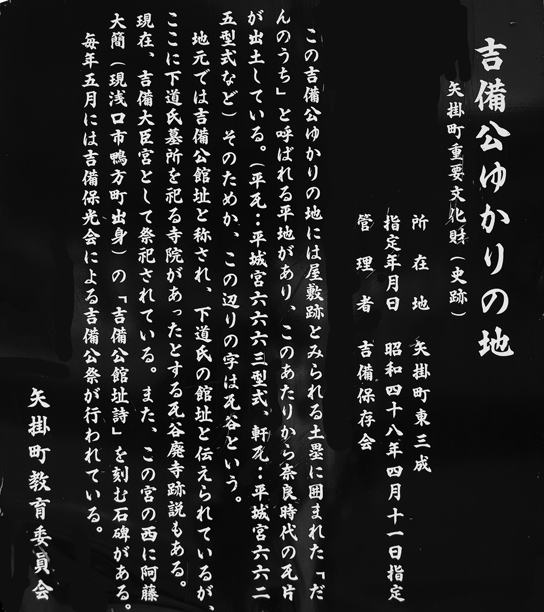 吉備公ゆかりの地
矢掛町重要文化財（史跡）
所在地　矢掛町東三成
指定年月日　昭和四十八年四月十一日指定
管理者　吉備保存会
この吉備公ゆかりの地には屋敷跡とみられる土塁に囲まれた「だ
んのうち」と呼ばれる平地があり、このあたりから奈良時代の瓦片
が出土している。（平瓦：平城宮六六六三型式、軒瓦：平城宮六六二
五型式など）そのためか、この辺りの字は瓦谷という。
地元では吉備公館址と称され、下道氏の館址と伝えられているが、
ここに下道氏墓所を祀る寺院があったとする瓦谷廃寺跡説もある。
現在、吉備大臣宮として祭祀されている。また、この宮の西に阿藤
大簡（現浅口市鴨方町出身）の「吉備公館址詩」を刻む石碑がある。
毎年五月には吉備保光会による吉備公祭が行われている。
矢掛町教育委員会